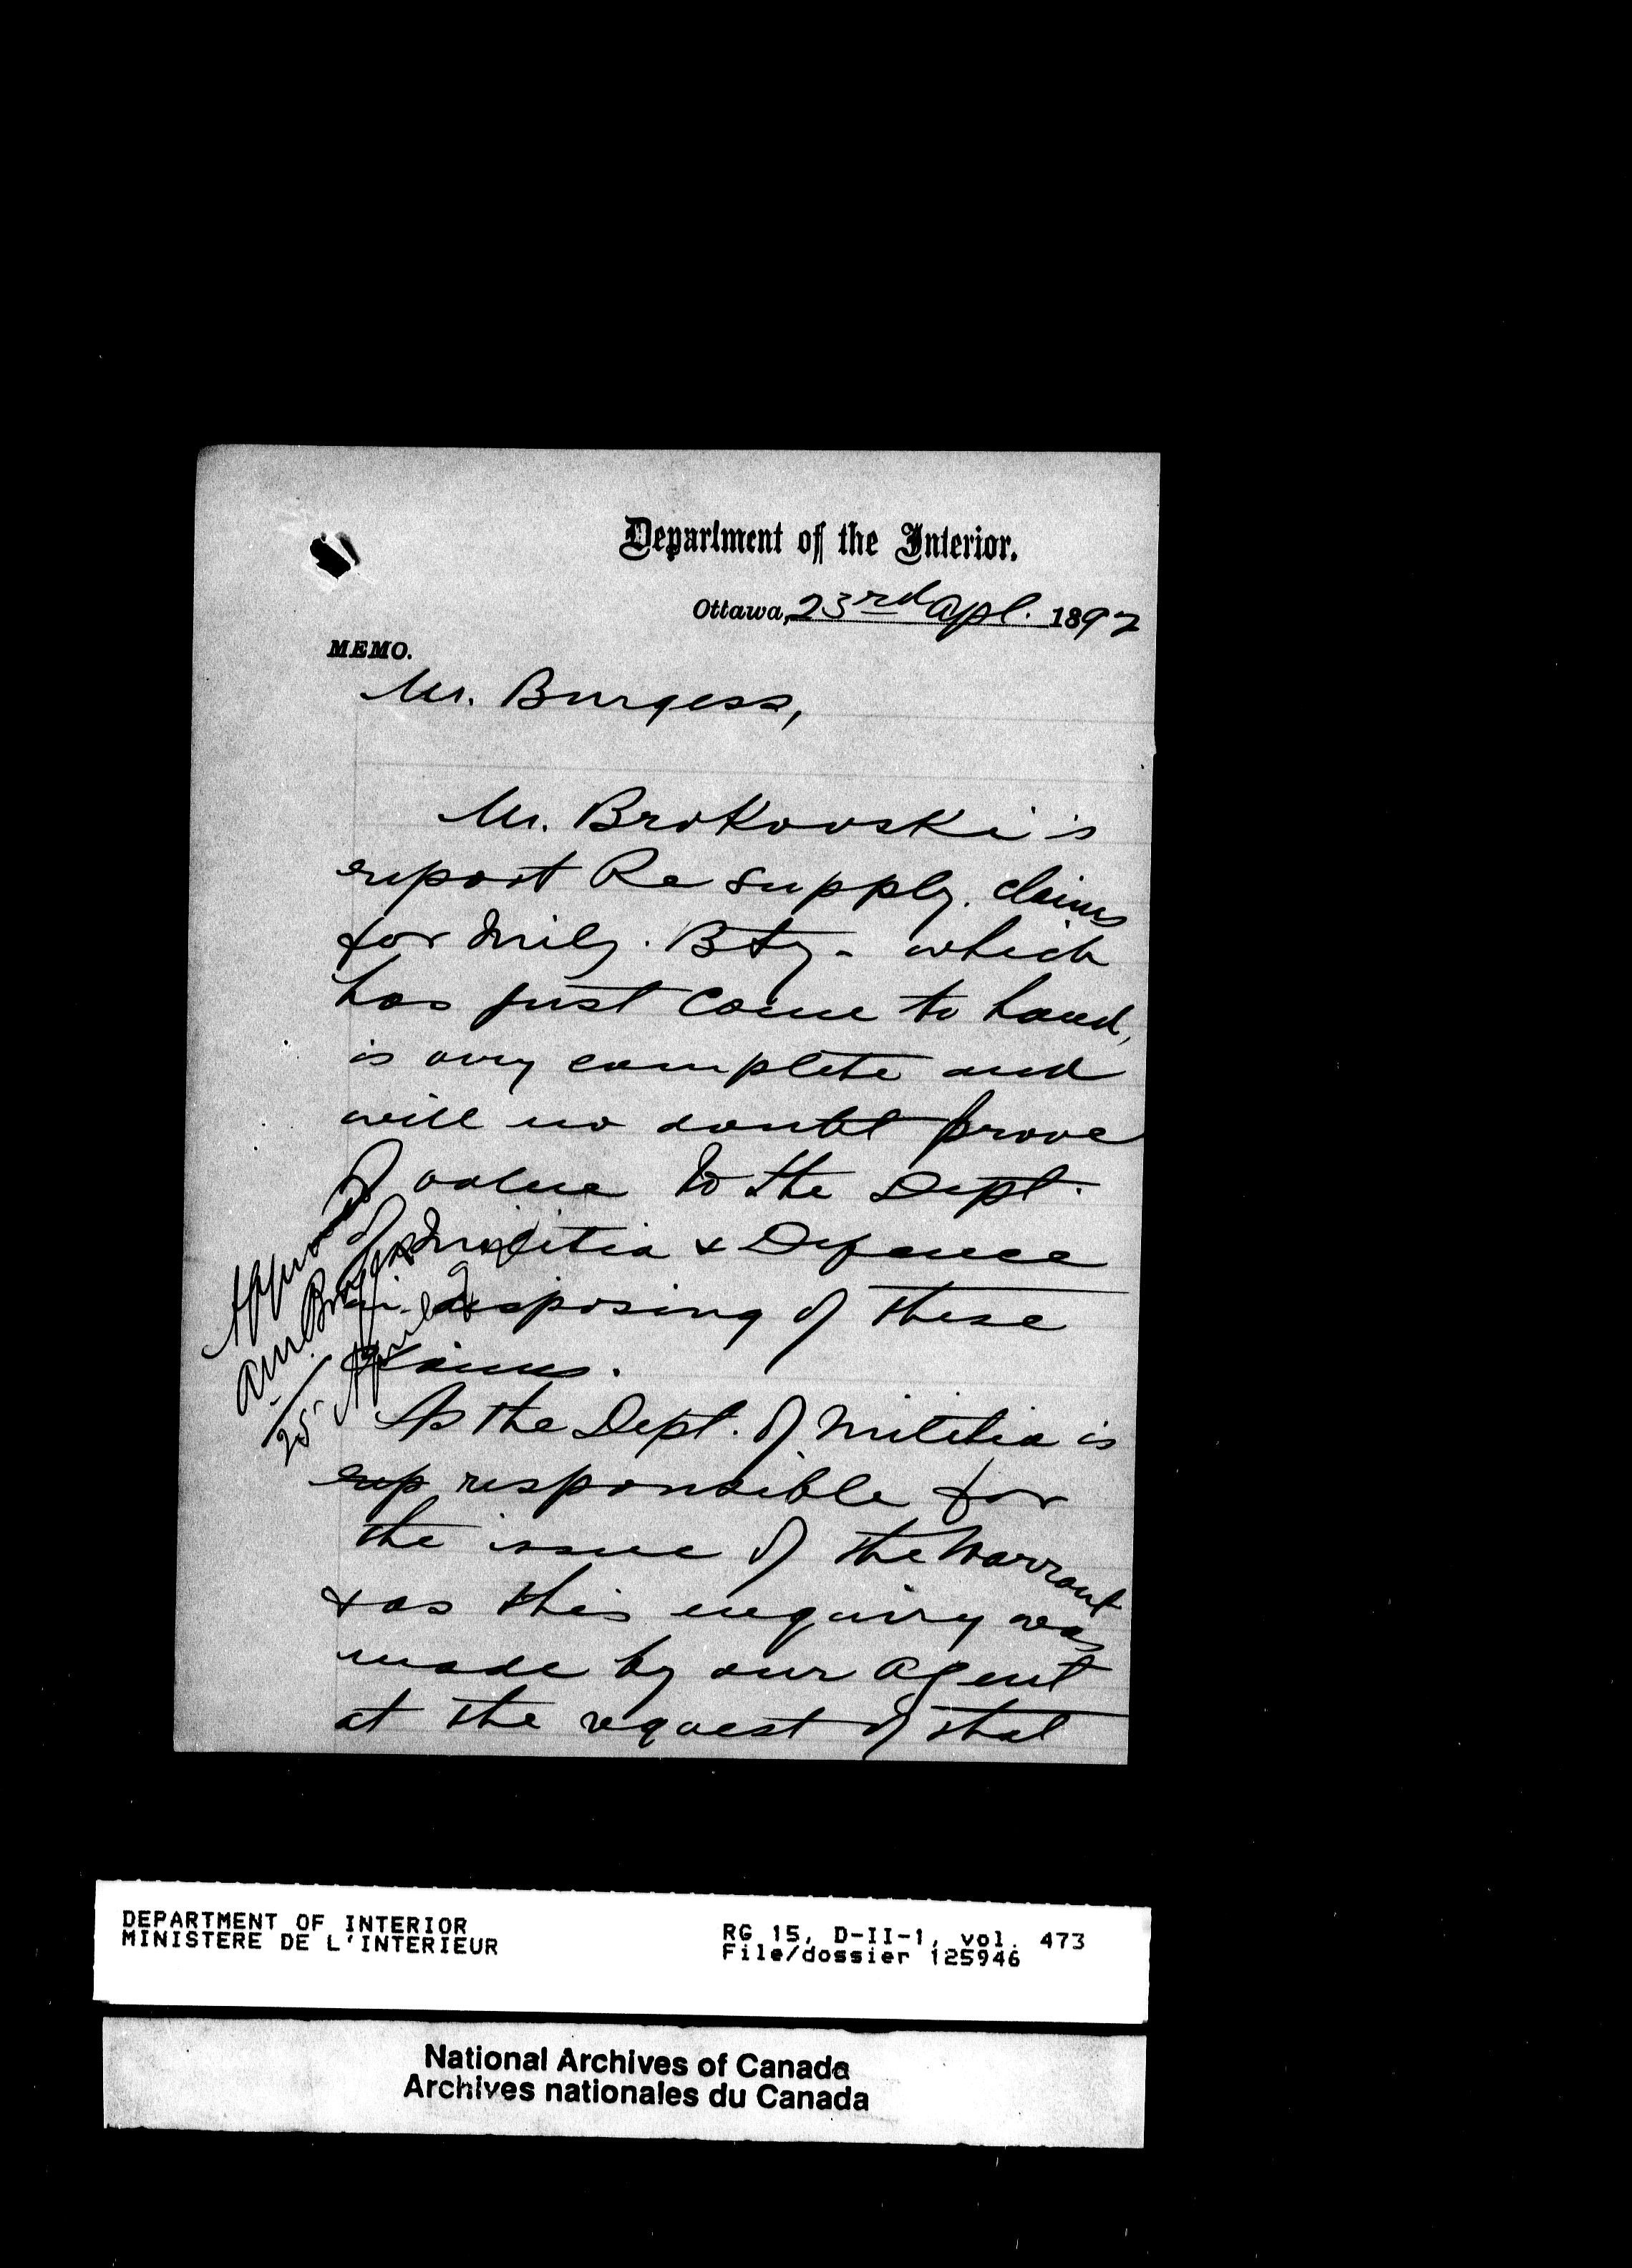 Department of the Interior.
Ottawa, 23rd Apl. 1892
MEMO.
Mr. Burgess,
Mr. Brokovski's
report Re Supply. claims
for Mily. Bty. which
has just come to hand,
is very complete and
will no doubt prove
of value to the Dept.
of Militia & Defence
in disposing of these
claims.
As the Dept. of Militia is
rep responsible for
the issue of the Warrant
& as this enquiry was
made by our agent
at the request of that
Approved
AM Burgess
25 April 92
DEPARTMENT OF INTERIOR
MINISTERE DE L'INTERIEUR
RG 15, D-II-1, vol. 473
File/dossier 125946
National Archives of Canada
Archives nationales du Canada